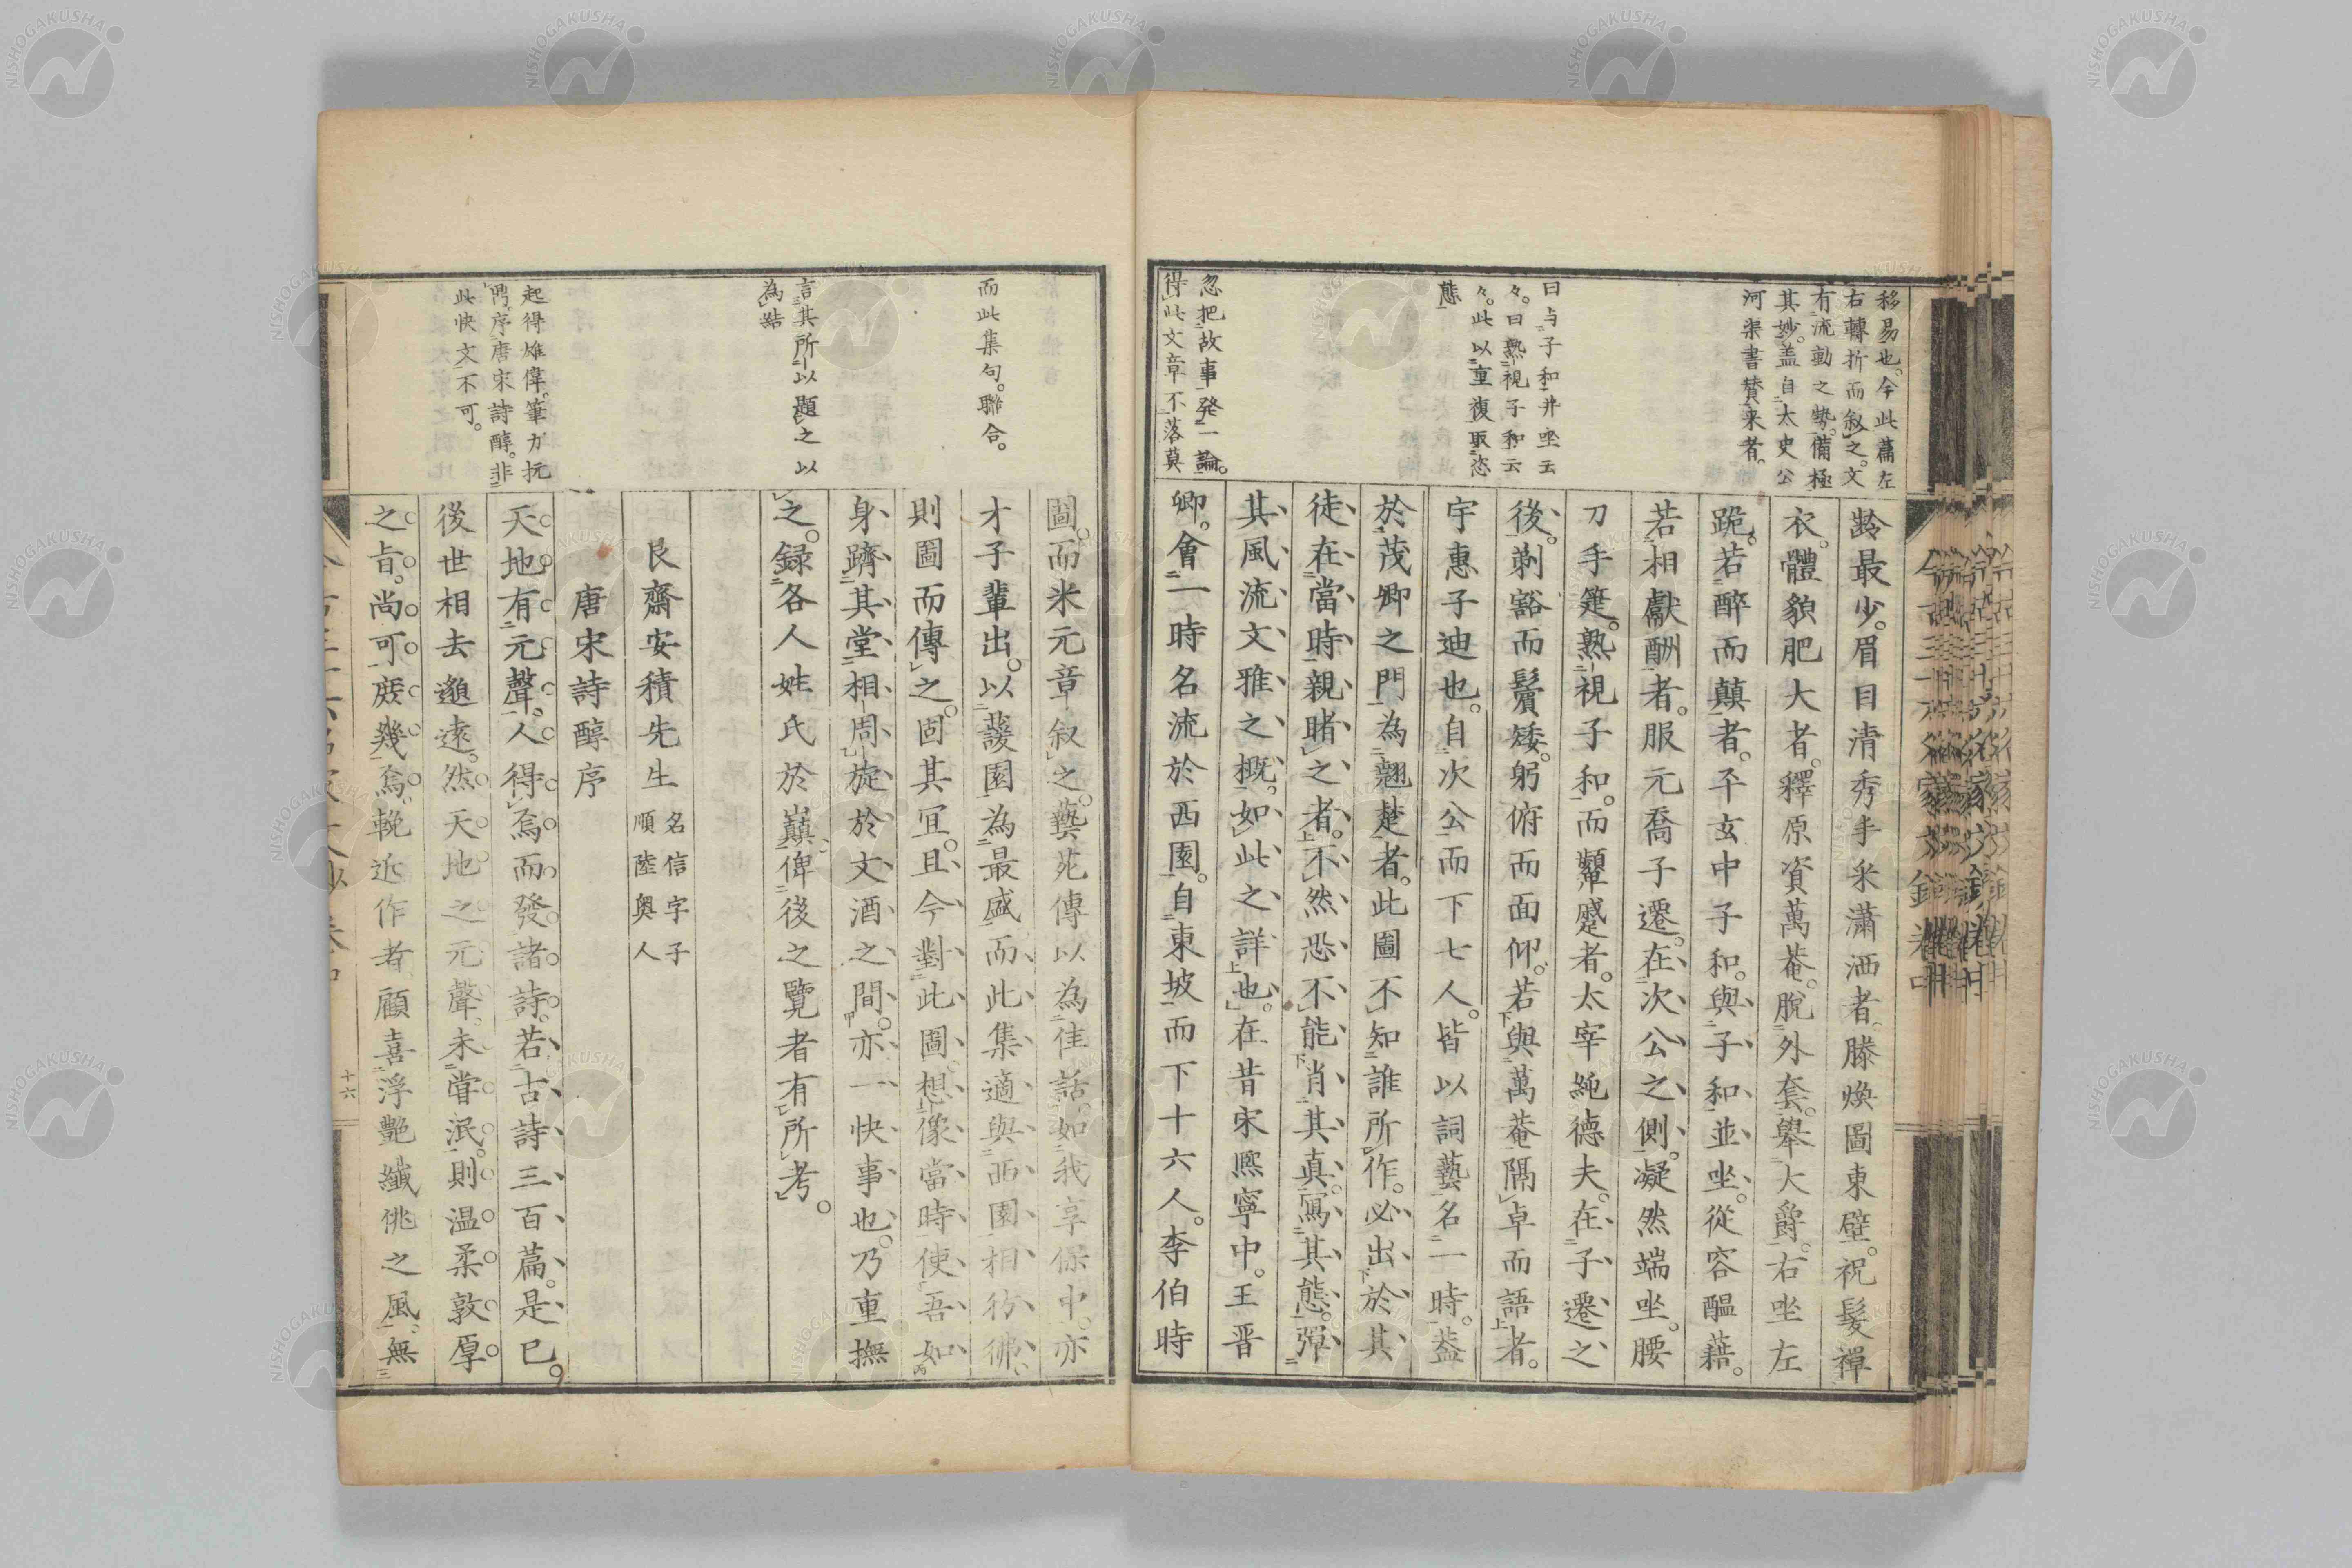 移易也。今此篇左
右轉折而叙之。文
有流動之勢。備極
其妙。盖自太史公
河渠書賛来者。
曰与子和并坐云
々。曰熟視子和云
々。此以重復取恣
態
忽把故事発一論。
得此文章不落莫
齡最少。眉目清秀手采瀟洒者。滕煥圖東壁。祝髮禪
衣。體貌肥大者。釋原資萬菴。脫外套。舉大爵。右坐左
跪。若醉而顛者。平玄中子和。與子和並坐。從容醞藉。
若相獻酬者。服元喬子遷。在次公之側。凝然端坐。腰
刀手箑。熟視子和。而顰蹙者。太宰純德夫。在子遷之
後。剃豁而鬢矮。躬俯而面仰。若與萬菴隔卓而語者。
宇惠子迪也。自次公而下七人。皆以詞藝名一時。蓋
於茂卿之門。為翹楚者。此圖不知誰所作。必出於其
徒在當時親睹之者。不然恐不能肖其真。寫其態。彈
其風流文雅之概。如此之詳也。在昔宋熈寧中。王晋
卿。會一時名流於西園。自東坡而下十六人。李伯時
而此集句。聯合。
言其所以題之以
為結
起得雄偉。筆力抗
鼎。序唐宋詩醇。非
此快文不可。
圖。而米元章叙之。藝苑傳以為佳話。如我享保中。亦
才子輩出。以蘐園為最盛。而此集適與西園相彷彿。
則圖而傳之。固其宜。且今對此圖。想像當時。使吾如
身躋其堂。相周旋於文酒之間。亦一快事也。乃重撫
之。録各人姓氏於巔。俾後之覽者有所考。
艮齋安積先生 名信字子
順陸奧人
唐宋詩醇序
天地有元聲。人得焉而發諸詩。若古詩三百篇。是已。
後世相去邈遠。然天地之元聲。未嘗泯。則温柔敦厚
之旨。尚可庶幾焉。輓近作者顧喜浮艷纎佻之風。無
十六